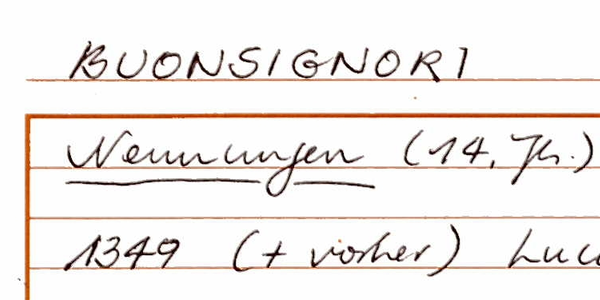 BUONSIGNORI
Nennungen (14. Jh.)
1349 (+ vorher) Luc